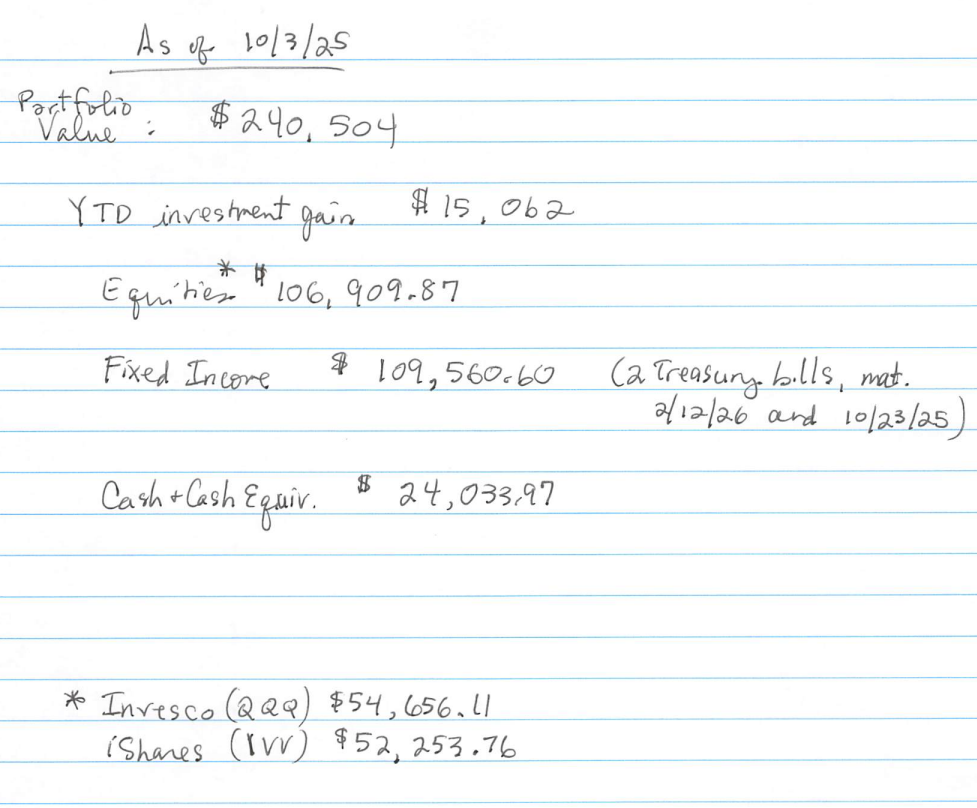 As of 10/3/25
Portfolio
Value : $ 240,504
YTD investment gain $ 15,062
Equities* $ 106,909.87
Fixed Income $ 109,560.60 (2 Treasury bills, mat.
2/12/26 and 10/23/25)
Cash + Cash Equiv. $ 24,033.97
* Invesco (QQQ) $54,656.11
iShares (IVV) $52,253.76